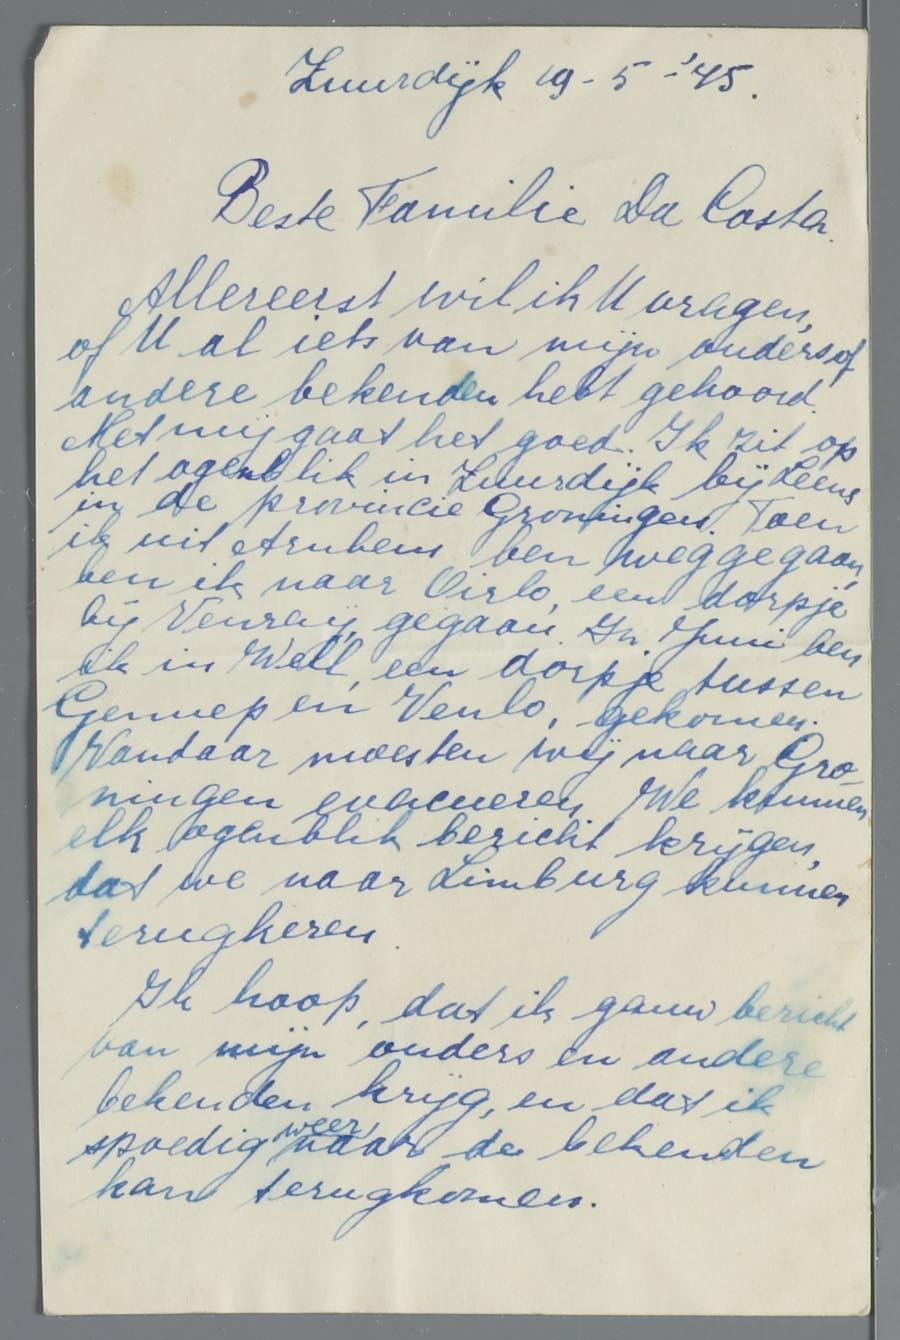 Zuurdijk 19-5-'45.
Beste Familie Da Costa.
Allereerst wil ik U vragen,
of U al iets van mijn ouders of
andere bekenden hebt gehoord.
Met mij gaat het goed. Ik zit op
het ogenblik in Zuurdijk bij Leens
in de provincie Groningen. Toen
ik uit Arnhem ben weggegaan,
ben ik naar Oirlo, een dorpje
bij Venray, gegaan. In Juni ben
ik in Well, een dorpje tussen
Gennep en Venlo, gekomen.
Vandaar moesten wij naar Gro-
ningen evacueren. We kunnen
elk ogenblik bericht krijgen,
dat we naar Limburg kunnen
terugkeren.
Ik hoop, dat ik gauw bericht
van mijn ouders en andere
bekenden krijg, en dat ik
spoedig weer naar de bekenden
kan terugkomen.